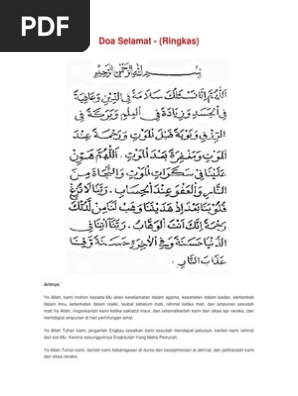 PDF
Doa Selamat - (Ringkas)
بسم الله الرحمن الرحيم
اللهم إنا نسئلك سلامة في الدين وعافية
في الجسد وزيادة في العلم وبركة في
الرزق وتوبة قبل الموت ورحمة عند
الموت ومغفرة بعد الموت . اللهم هون
علينا في سكرات الموت والنجاة من
النار والعفو عند الحساب . ربنا لا تزغ
قلوبنا بعد إذ هديتنا وهب لنا من لدنك
رحمة إنك أنت الوهاب . ربنا آتنا في
الدنيا حسنة وفي الآخرة حسنة وقنا
عذاب النار .
Artinya:
Ya Allah, kami mohon kepada-Mu akan keselamatan dalam agama, kesihatan dalam badan, bertambah
dalam ilmu, keberkatan dalam rezeki, taubat sebelum mati, rahmat ketika mati, dan ampunan sesudah
mati.Ya Allah, ringankanlah kami ketika sakratul maut, dan selamatkanlah kami dari siksa api neraka, dan
mendapat ampunan di hari perhitungan amal.
Ya Allah Tuhan kami, janganlah Engkau sesatkan kami sesudah mendapat petunjuk, berilah kami rahmat
dari sisi-Mu. Karena sesungguhnya Engkaulah Yang Maha Pemurah.
Ya Allah Tuhan kami, berilah kami kebahagiaan di dunia dan kesejahteraan di akhirat, dan peliharalah kami
dari siksa neraka.